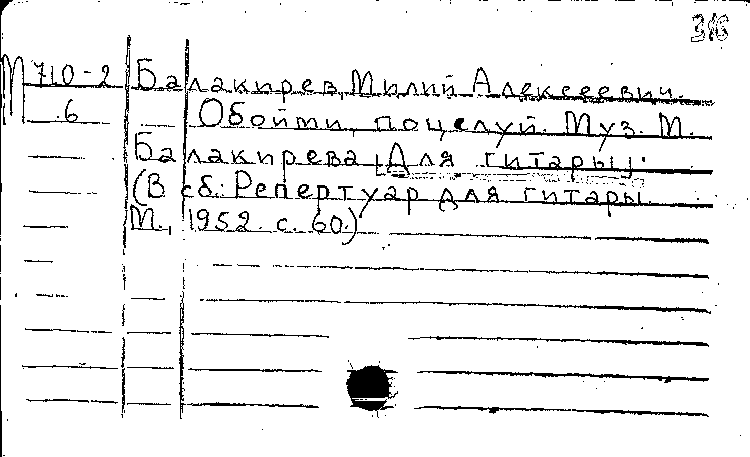 М 710-2 Балакирев, Милий Алексеевич.
6 Обойми, поцелуй. Муз. М.
Балакирева [Для гитары].
(В сб.: Репертуар для гитары.
М., 1952. с. 60.)